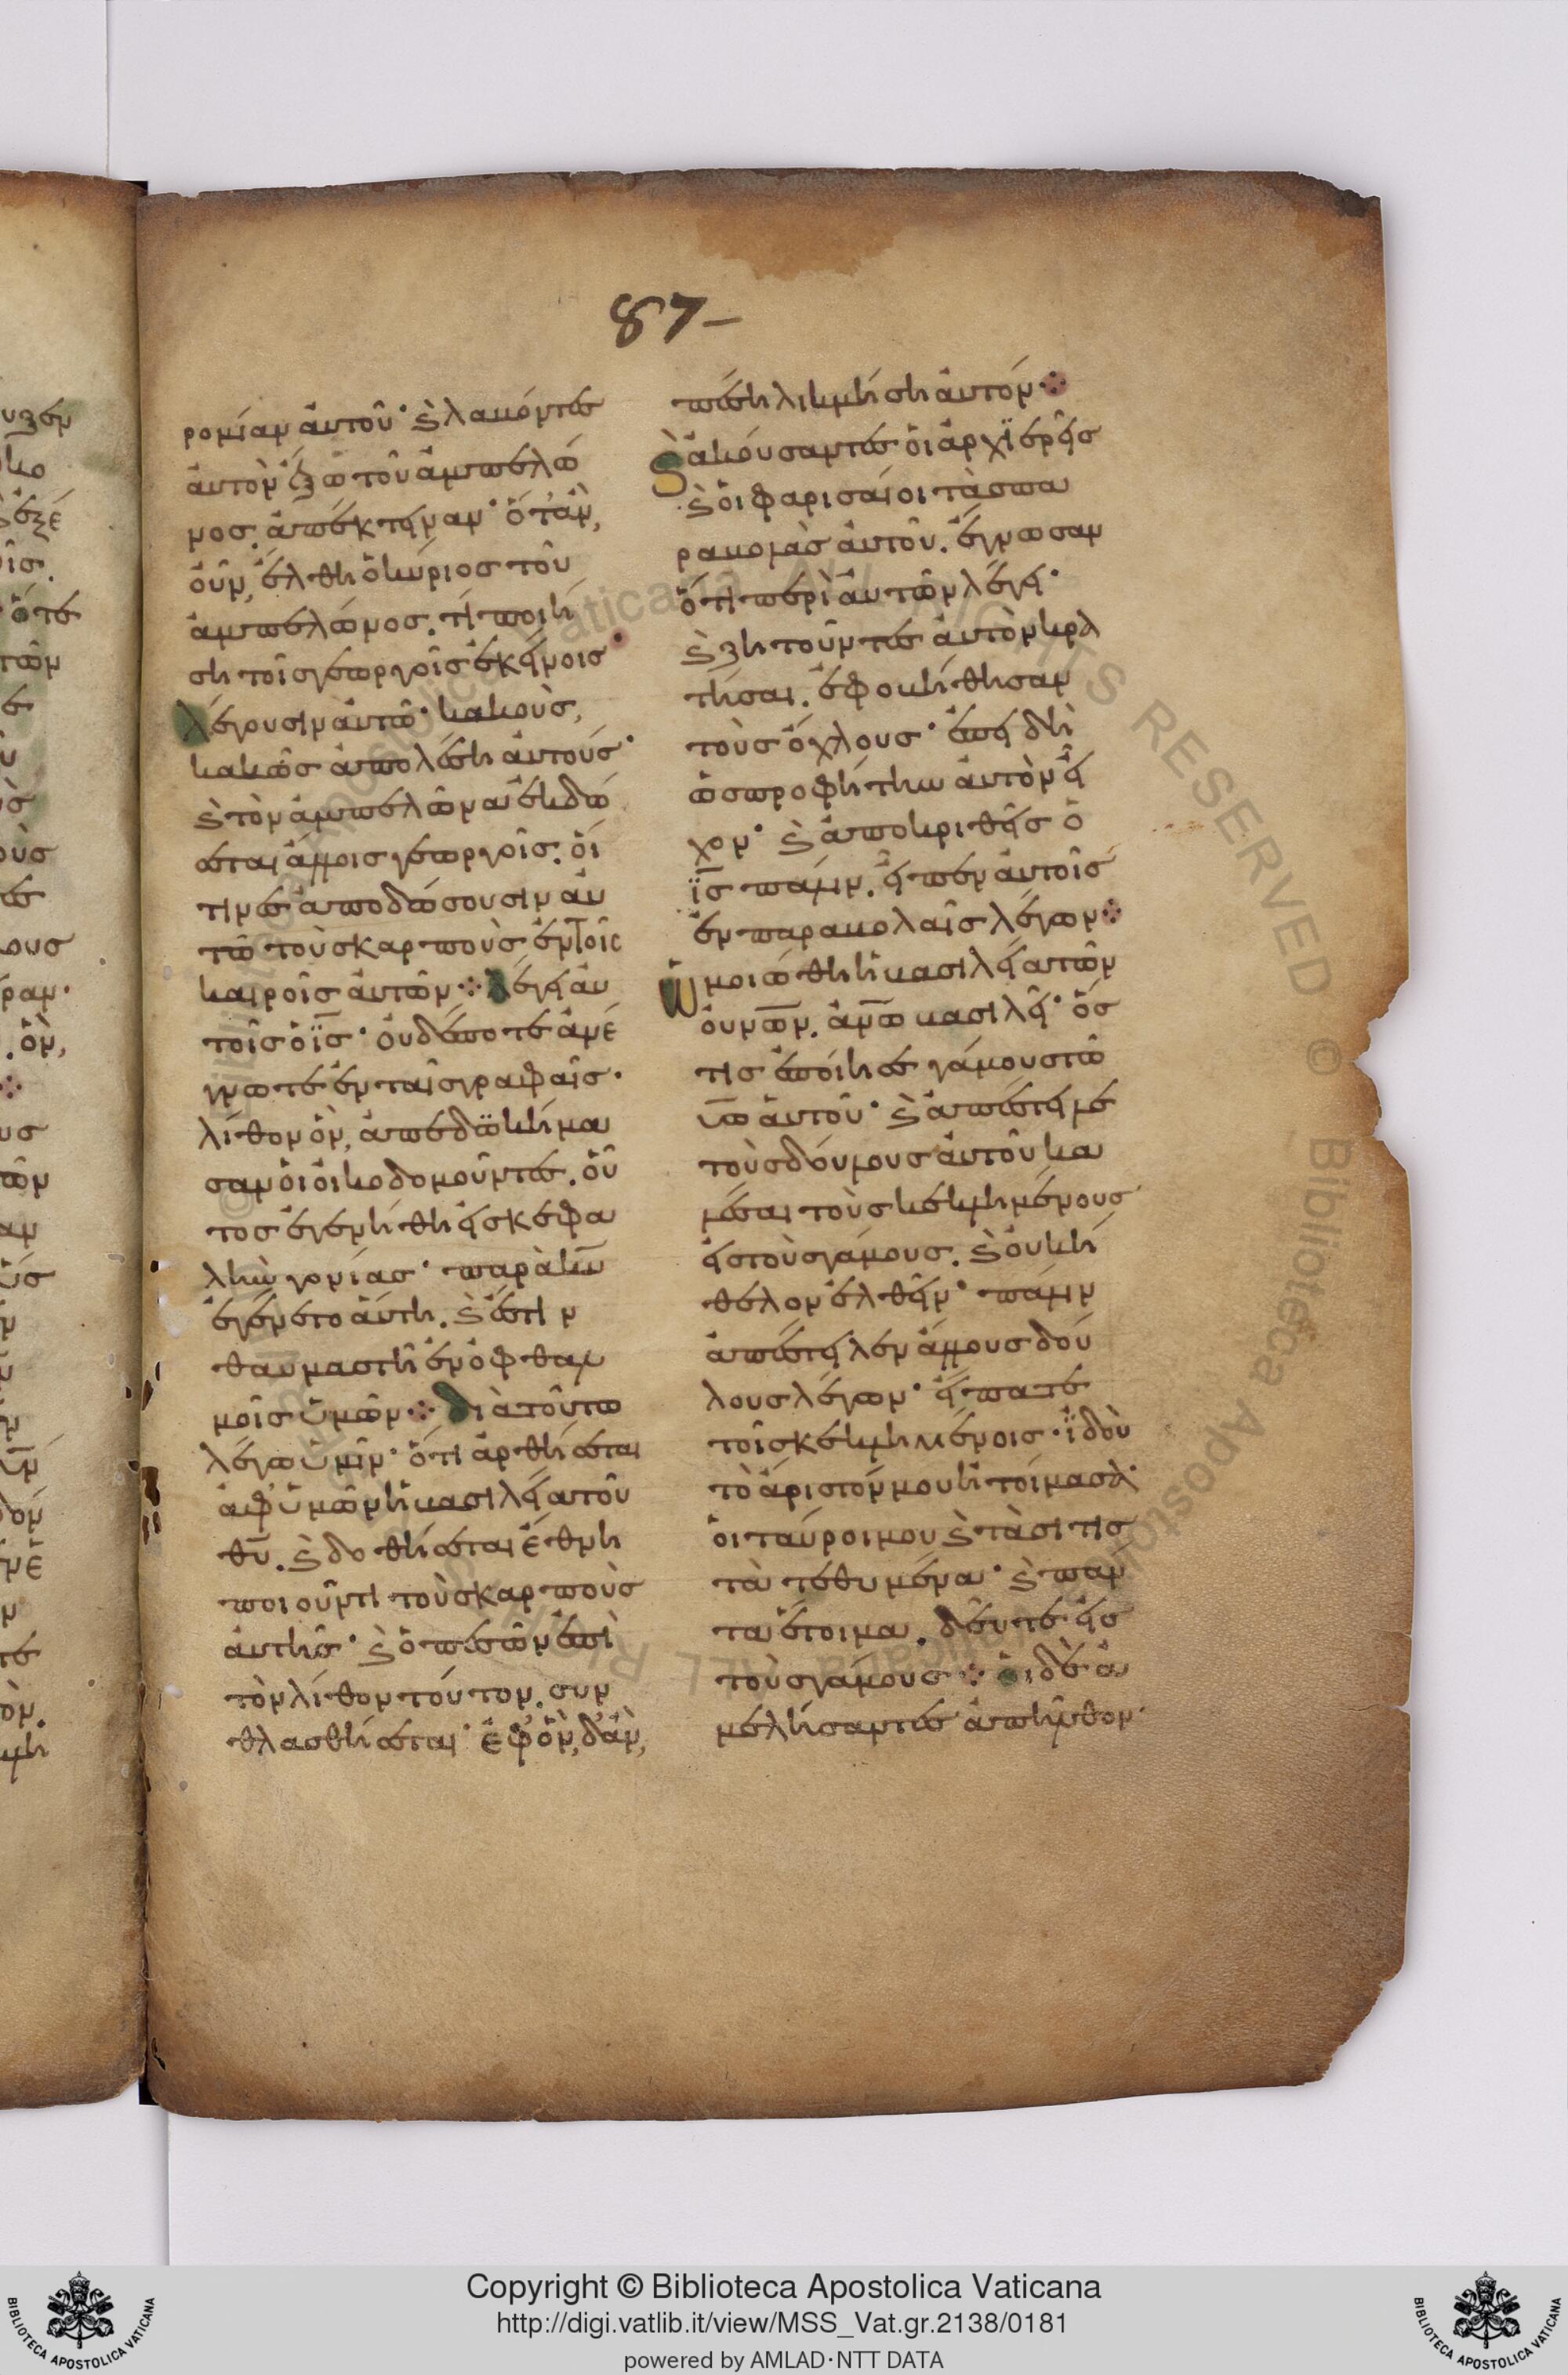 87-
ρομίαν ἀυτοῦ· ϗ λαβόντες
ἀυτὸν ἔξω τοῦ ἀμπελῶ
νος. ἀπέκτειναν· ὅτἂν,
οὖν, ἔλθη ὁ κύριος τοῦ
ἀμπελῶνος. τί ποιή
ση τοῖς γεωργοῖς ἐκείνοις·
λέγουσιν ἀυτῶ· κακοὺς,
κακῶς ἀπολέση ἀυτούς·
ϗ τὸν ἀμπελῶνα ἐκδώ
σεται ἄλλοις γεωργοῖς. ὅι
τινες ἀποδώσουσιν ἀυ
τῶ τοὺς καρποὺς ἐν τοῖς
καιροῖς ἀυτῶν⁘ λέγει ἀυ
τοῖς ὁ ϊς· ὀυδέποτε ἀνέ
γνωτε ἐν ταῖς γραφαῖς·
λίθον ὃν, ἀπεδωκήμα
σαν ὁι ὀικοδομοῦντες. οὗ
τος ἐγενήθη εἰς κεφα
λὴν γονίας· παρὰ κυ
ἐγένετο ἁύτη. ϗ ἔστιν
θαυμαστὴ ἐν ὀφθαλ
μοῖς ὑμῶν⁘ διὰ τοῦτο
λέγω ὑμῖν· ὅτι ἀρθήσεται
ἀφ ὑμῶν ἡ βασιλεία τοῦ
θυ. ϗ δοθήσεται ἔθνη
ποιοῦντι τοὺς καρποὺς
ἀυτῆς· ϗ ὁ πεσῶν ἐπὶ
τὸν λίθον τοῦτον. συν
θλασθήσεται· ἐφ ὃν, δἂν,
πέση λικμήση ἀυτόν⁘
ϗ ἀκούσαντες ὁι ἀρχϊερεῖς
ϗ ὁι φαρισαῖοι τὰς πα
ραβολὰς ἀυτοῦ. ἔγνωσαν
ὅτι περὶ ἀυτῶν λέγει·
ϗ ζητοῦντες ἀυτὸν κρα
τῆσαι. ἐφοβήθησαν
τοὺς ὄχλους· ἐπειδὴ
ὡς προφήτην ἀυτὸν εἶ
χον· ϗ ἀποκριθεὶς ὁ
ϊς πάλιν. εἶπεν ἀυτοῖς
ἐν παραβολαῖς λέγων⁘
Ὡμοιώθη ἡ βασιλεία τῶν
ὀυνων. ἀνω βασιλεῖ· ὅσ
τις ἐποίησε γάμους τῶ
υω ἀυτοῦ· ϗ ἀπέστειλε
τοὺς δούλους ἀυτοῦ κα
λέσαι τοὺς κεκλημένους
εἰς τοὺς γάμους. ϗ ὀυκ ἤ
θελον ἐλθεῖν· πάλιν
ἀπέστειλεν ἄλλους δού
λους λέγων· εἴπατε
τοῖς κεκλημένοις· ϊδοὺ
τὸ ἄριστόν μου ἡτοίμασα·
ὁι ταῦροι μου ϗ τὰ σιτισ
τὰ τεθυμένα· ϗ πάν
τα ἕτοιμα. δεῦτε εἰς
τοὺς γάμους⁘ ὁι δὲ ἀ
μελήσαντες ἀπῆλθον·
Copyright © Biblioteca Apostolica Vaticana
http://digi.vatlib.it/view/MSS_Vat.gr.2138/0181
powered by AMLAD·NTT DATA